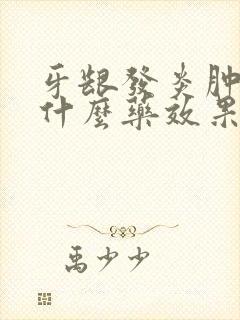 牙龈發炎肿
什麼藥效果
禹少少